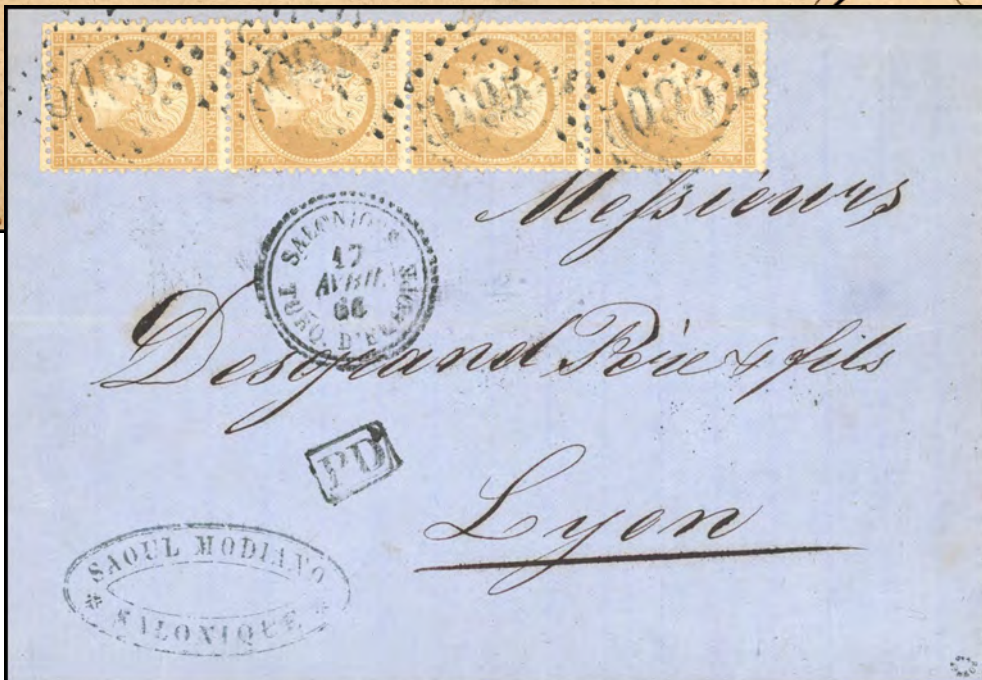 Messieurs
SALONIQUE
17
AVRIL
66
TURQ. D'EUROPE
Desgrand Père & fils
PD
Lyon
SAOUL MODIANO
SALONIQUE